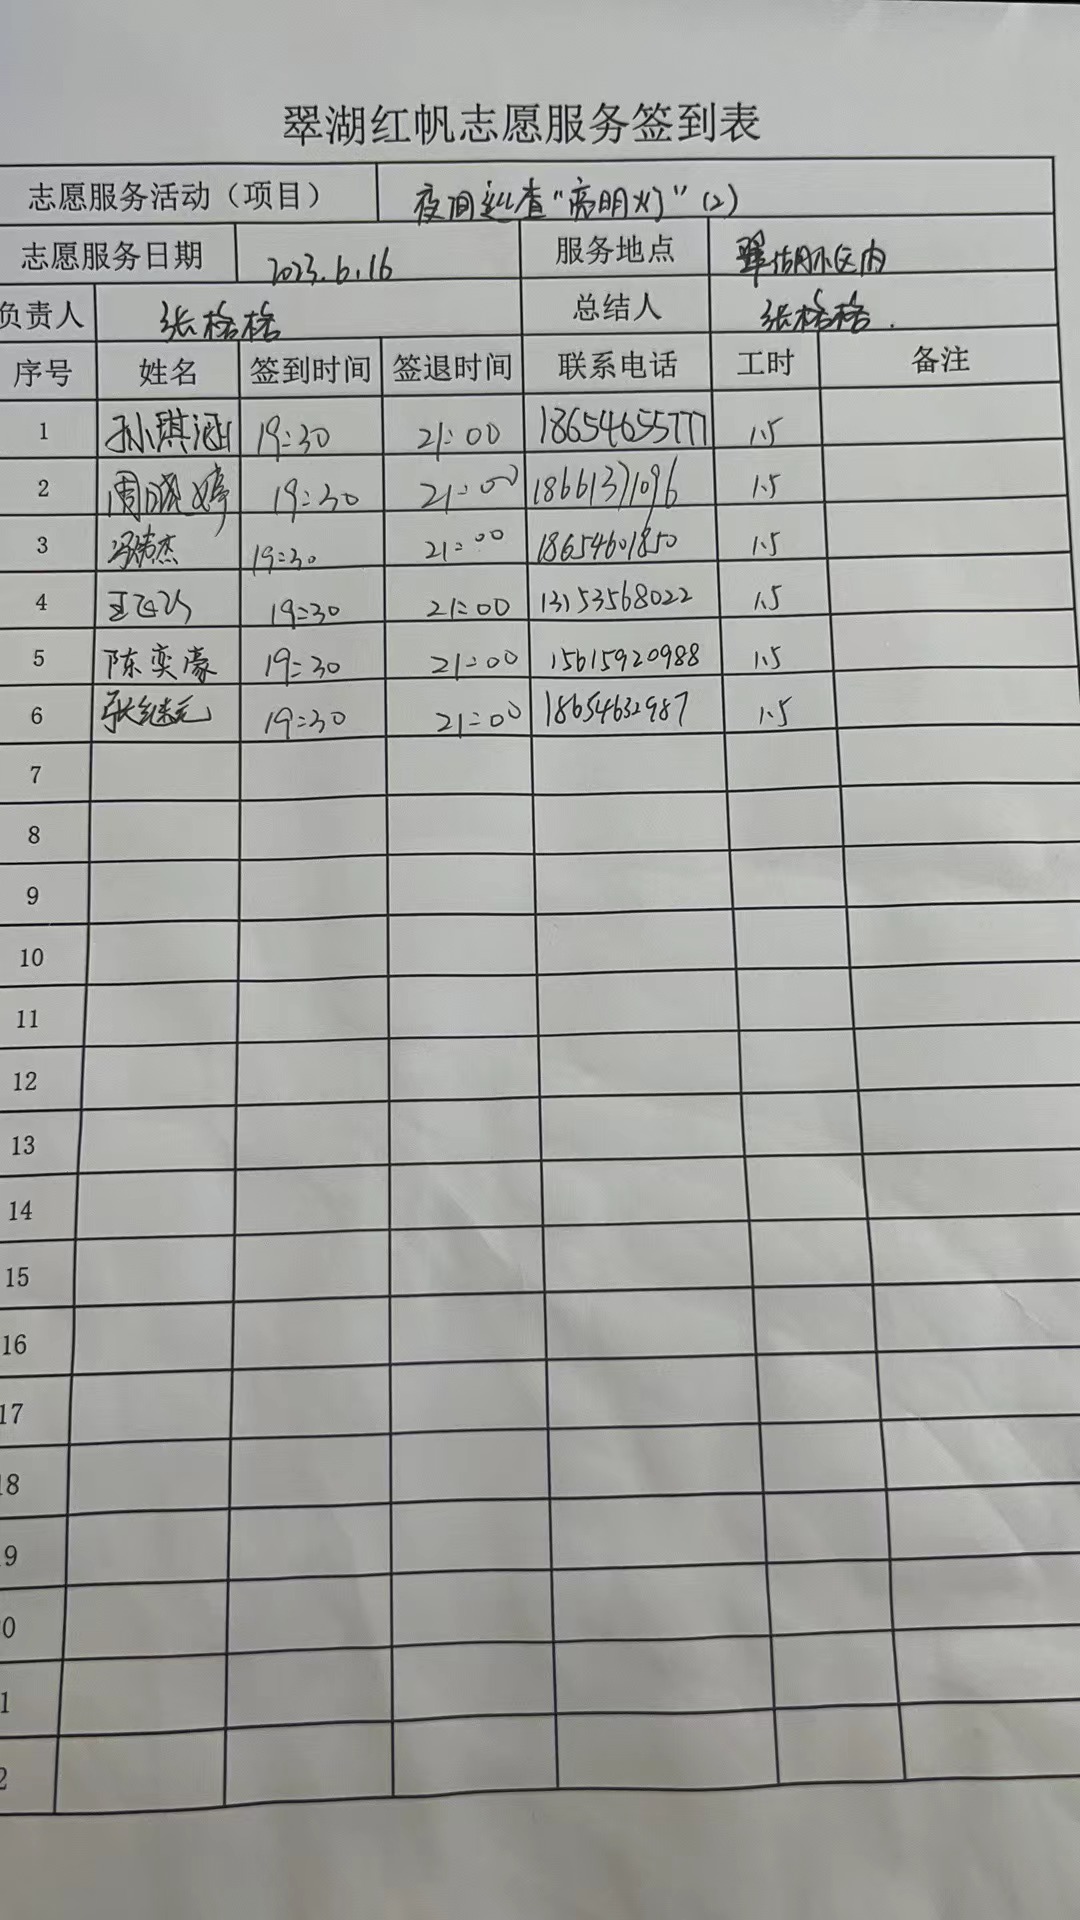 翠湖红帆志愿服务签到表
志愿服务活动（项目） 夜间巡查“亮明灯”（2）
志愿服务日期 2023.6.16 服务地点 翠湖小区内
负责人 张格格 总结人 张格格.
序号 姓名 签到时间 签退时间 联系电话 工时 备注
1 孙琪涵 19:30 21:00 18654655777 1.5
2 周晓婷 19:30 21:00 18661371096 1.5
3 19:30 21:00 18654601850 1.5
4 19:30 21:00 13153568022 1.5
5 陈奕濠 19:30 21:00 15615920988 1.5
6 张继元 19:30 21:00 18654632987 1.5
7
8
9
10
11
12
13
14
15
16
17
18
9
0
1
2